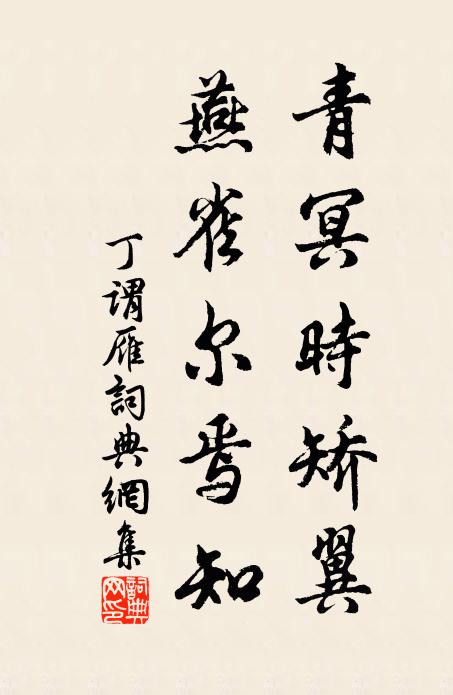 青冥時矯翼
燕雀尔焉知
丁謂雁詞典網集
詞典網印